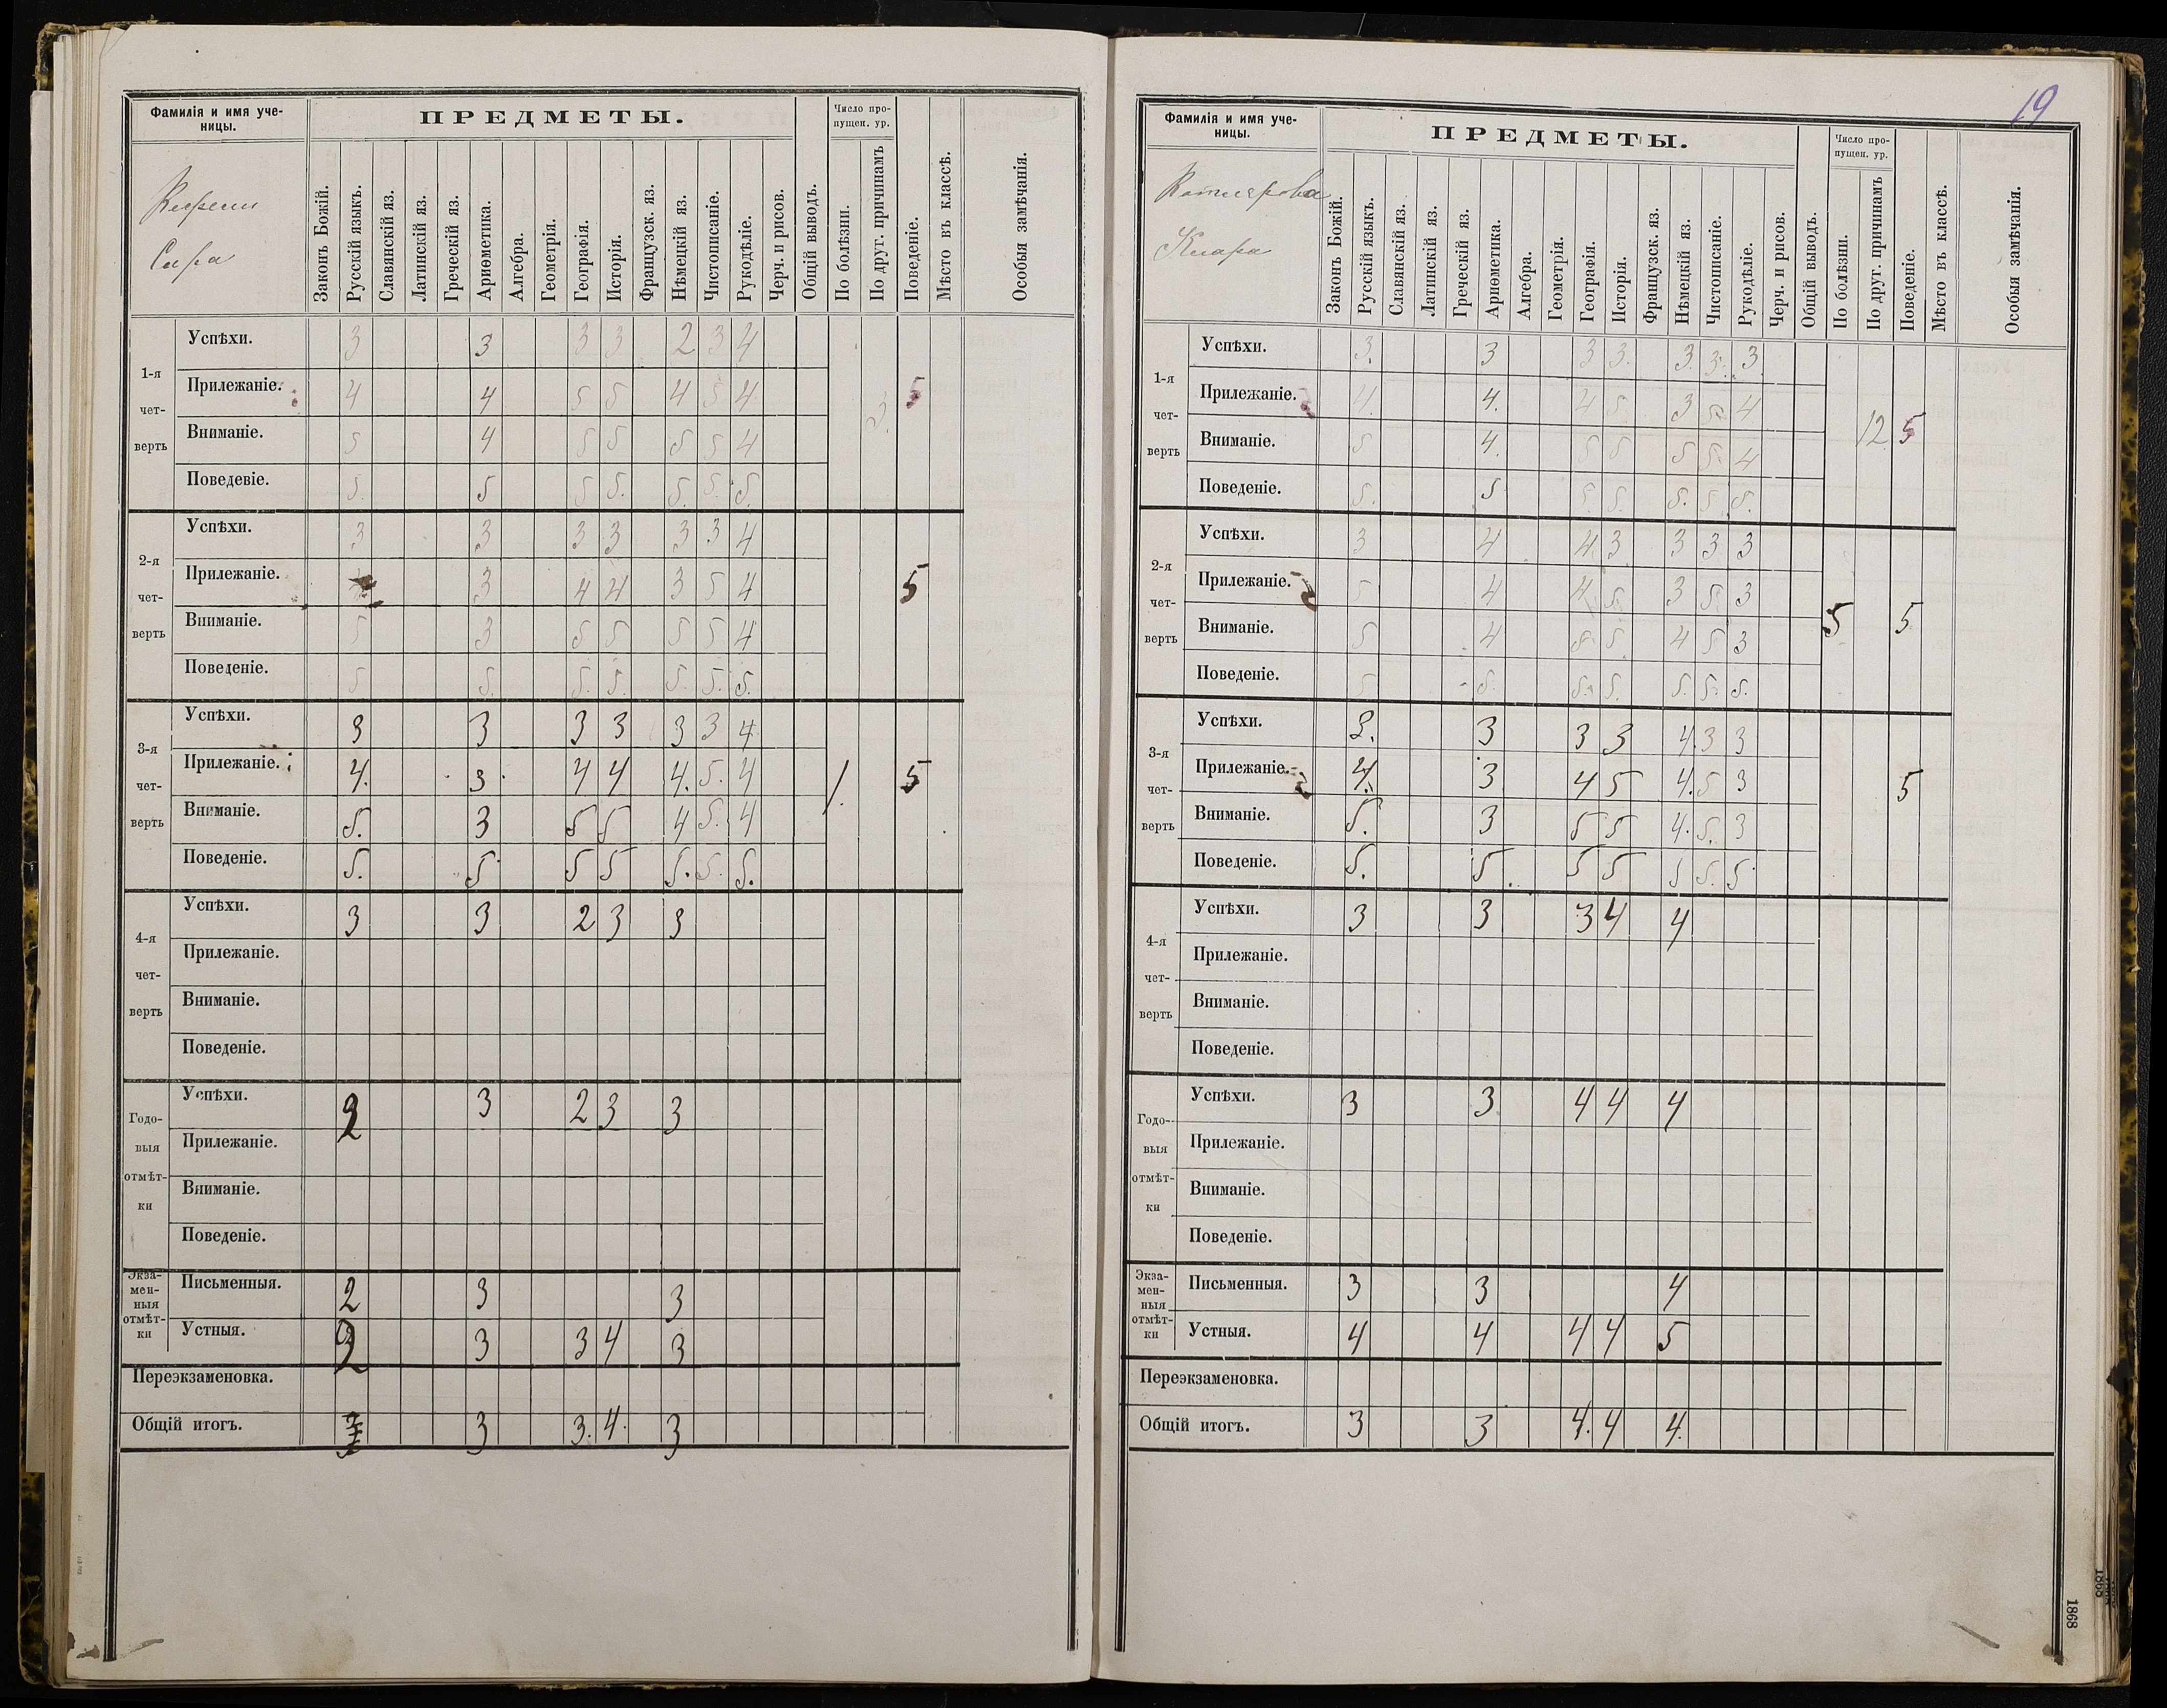 Фамилія и имя уче-
ницы.
ПРЕДМЕТЫ.
Число про-
пущен. ур.
Сара
Законъ Божій.
Русскій языкъ.
Славянскій яз.
Латинскій яз.
Греческій яз.
Ариѳметика.
Алгебра.
Геометрія.
Географія.
Исторія.
Французск. яз.
Нѣмецкій яз.
Чистописаніе.
Рукодѣліе.
Черч. и рисов.
Общій выводъ.
По болѣзни.
По друг. причинамъ
Поведеніе.
Мѣсто въ классѣ.
Особыя замѣчанія.
1-я
чет-
верть
Успѣхи. 3 3 3 3 2 3 4
Прилежаніе. 4 4 5 5 4 5 4 3. 5
Вниманіе. 5 4 5 5 5 5 4
Поведевіе. 5. 5 5 5. 5. 5. 5.
2-я
чет-
верть
Успѣхи. 3 3 3 3 3 3 4
Прилежаніе. 3 4 4 3 5 4 5
Вниманіе. 5 3 5 5 5 5 4
Поведеніе. 5 5. 5. 5. 5. 5. 5.
3-я
чет-
верть
Успѣхи. 3 3 3 3 3 3 4
Прилежаніе. 4. 3 4 4 4. 5. 4 1. 5
Вниманіе. 5. 3 5 5 4 5. 4
Поведеніе. 5. 5 5 5 5. 5. 5.
4-я
чет-
верть
Успѣхи. 3 3 2 3 3
Прилежаніе.
Вниманіе.
Поведеніе.
Годо-
выя
отмѣт-
ки
Успѣхи. 2 3 2 3 3
Прилежаніе.
Вниманіе.
Поведеніе.
Экза-
мен-
ныя
отмѣт-
ки
Письменныя. 2 3 3
Устныя. 2 3 3 4 3
Переэкзаменовка.
Общій итогъ. 3 3. 4. 3
19
Фамилія и имя уче-
ницы.
ПРЕДМЕТЫ.
Число про-
пущен. ур.
Клара
Законъ Божій.
Русскій языкъ.
Славянскій яз.
Латинскій яз.
Греческій яз.
Ариѳметика.
Алгебра.
Геометрія.
Географія.
Исторія.
Французск. яз.
Нѣмецкій яз.
Чистописаніе.
Рукодѣліе.
Черч. и рисов.
Общій выводъ.
По болѣзни.
По друг. причинамъ
Поведеніе.
Мѣсто въ классѣ.
Особыя замѣчанія.
1-я
чет-
верть
Успѣхи. 3. 3 3 3. 3. 3. 3.
Прилежаніе. 4. 4. 4 5 3 5 4
Вниманіе. 5 4. 5 5 5 5. 4 12 5
Поведеніе. 5. 5 5. 5. 5. 5. 5.
2-я
чет-
верть
Успѣхи. 3 4 4. 3 3 3 3
Прилежаніе. 5 4 4 5 3 5. 3
Вниманіе. 5 4 5 5. 4 5 3 5 5
Поведеніе. 5 5. 5. 5. 5. 5. 5.
3-я
чет-
верть
Успѣхи. 3. 3 3 3 4. 3 3
Прилежаніе. 4. 3 4 5 4. 5 3 5
Вниманіе. 5. 3 5 5 4. 5. 3
Поведеніе. 5. 5. 5 5 5 5. 5.
4-я
чет-
верть
Успѣхи. 3 3 3 4 4
Прилежаніе.
Вниманіе.
Поведеніе.
Годо-
выя
отмѣт-
ки
Успѣхи. 3 3 4 4 4
Прилежаніе.
Вниманіе.
Поведеніе.
Экза-
мен-
ныя
отмѣт-
ки
Письменныя. 3 3 4
Устныя. 4 4 4 4 5
Переэкзаменовка.
Общій итогъ. 3 3 4. 4 4.
1868